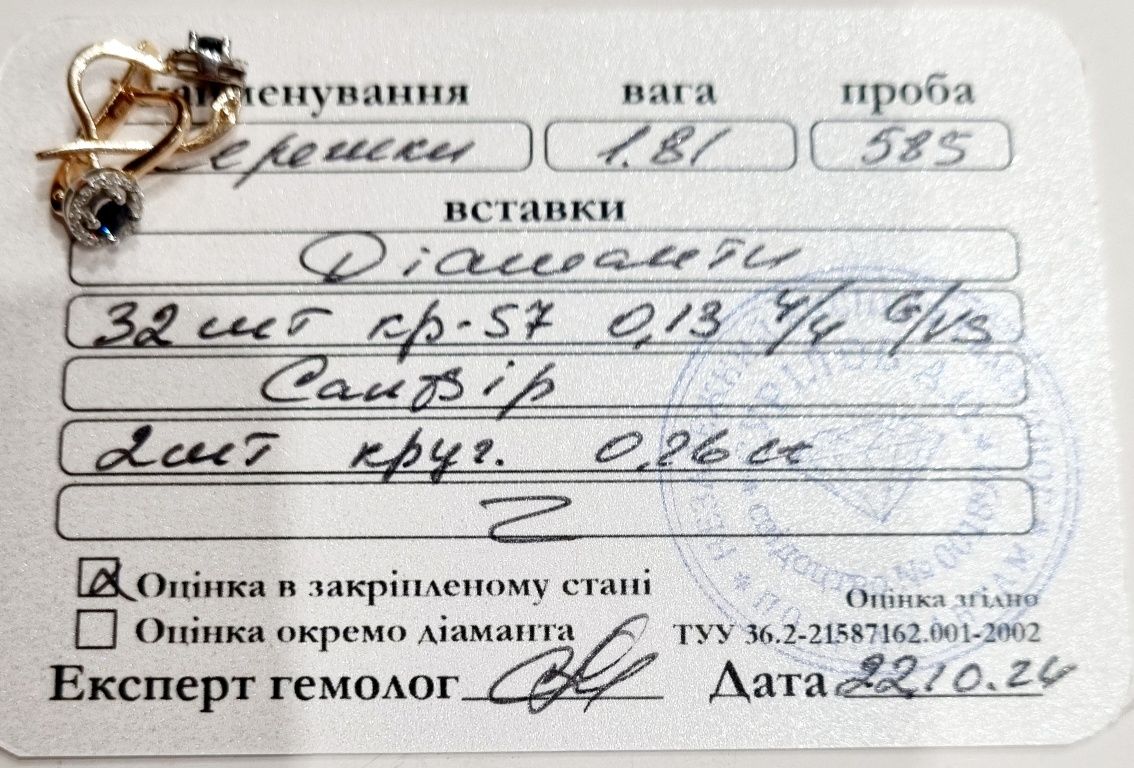 Найменування вага проба
Сережки 1.81 585
вставки
Діаманти
32 шт кр-57 0,13 4/4 G/VS
Сапфір
2 шт круг. 0,26 ct
Z
Оцінка в закріпленому стані
Оцінка окремо діаманта
Оцінка згідно
ТУУ 36.2-21587162.001-2002
Експерт гемолог Дата 22.10.24